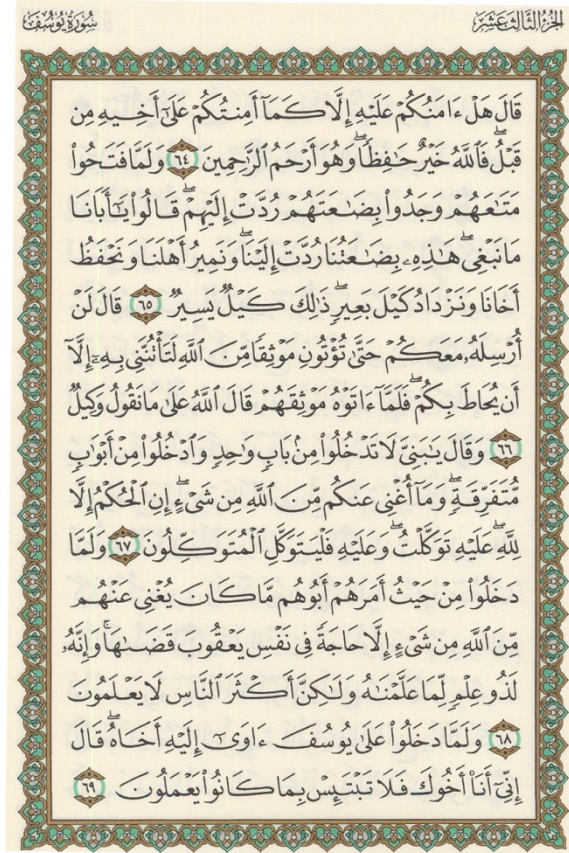 الجزء الثالث عشر
سورة يوسف
قَالَ هَلْ ءَامَنُكُمْ عَلَيْهِ إِلَّا كَمَآ أَمِنتُكُمْ عَلَىٰٓ أَخِيهِ مِن
قَبْلُ ۖ فَٱللَّهُ خَيْرٌ حَٰفِظًا ۖ وَهُوَ أَرْحَمُ ٱلرَّٰحِمِينَ ٦٤ وَلَمَّا فَتَحُوا۟
مَتَٰعَهُمْ وَجَدُوا۟ بِضَٰعَتَهُمْ رُدَّتْ إِلَيْهِمْ ۖ قَالُوا۟ يَٰٓأَبَانَا
مَا نَبْغِى ۖ هَٰذِهِۦ بِضَٰعَتُنَا رُدَّتْ إِلَيْنَا ۖ وَنَمِيرُ أَهْلَنَا وَنَحْفَظُ
أَخَانَا وَنَزْدَادُ كَيْلَ بَعِيرٍ ۖ ذَٰلِكَ كَيْلٌ يَسِيرٌ ٦٥ قَالَ لَنْ
أُرْسِلَهُۥ مَعَكُمْ حَتَّىٰ تُؤْتُونِ مَوْثِقًا مِّنَ ٱللَّهِ لَتَأْتُنَّنِى بِهِۦٓ إِلَّآ
أَن يُحَاطَ بِكُمْ ۖ فَلَمَّآ ءَاتَوْهُ مَوْثِقَهُمْ قَالَ ٱللَّهُ عَلَىٰ مَا نَقُولُ وَكِيلٌ
٦٦ وَقَالَ يَٰبَنِىَّ لَا تَدْخُلُوا۟ مِنۢ بَابٍ وَٰحِدٍ وَٱدْخُلُوا۟ مِنْ أَبْوَٰبٍ
مُّتَفَرِّقَةٍ ۖ وَمَآ أُغْنِى عَنكُم مِّنَ ٱللَّهِ مِن شَىْءٍ ۖ إِنِ ٱلْحُكْمُ إِلَّا
لِلَّهِ ۖ عَلَيْهِ تَوَكَّلْتُ ۖ وَعَلَيْهِ فَلْيَتَوَكَّلِ ٱلْمُتَوَكِّلُونَ ٦٧ وَلَمَّا
دَخَلُوا۟ مِنْ حَيْثُ أَمَرَهُمْ أَبُوهُم مَّا كَانَ يُغْنِى عَنْهُم
مِّنَ ٱللَّهِ مِن شَىْءٍ إِلَّا حَاجَةً فِى نَفْسِ يَعْقُوبَ قَضَىٰهَا ۚ وَإِنَّهُۥ
لَذُو عِلْمٍ لِّمَا عَلَّمْنَٰهُ وَلَٰكِنَّ أَكْثَرَ ٱلنَّاسِ لَا يَعْلَمُونَ
٦٨ وَلَمَّا دَخَلُوا۟ عَلَىٰ يُوسُفَ ءَاوَىٰٓ إِلَيْهِ أَخَاهُ ۖ قَالَ
إِنِّىٓ أَنَا۠ أَخُوكَ فَلَا تَبْتَئِسْ بِمَا كَانُوا۟ يَعْمَلُونَ ٦٩